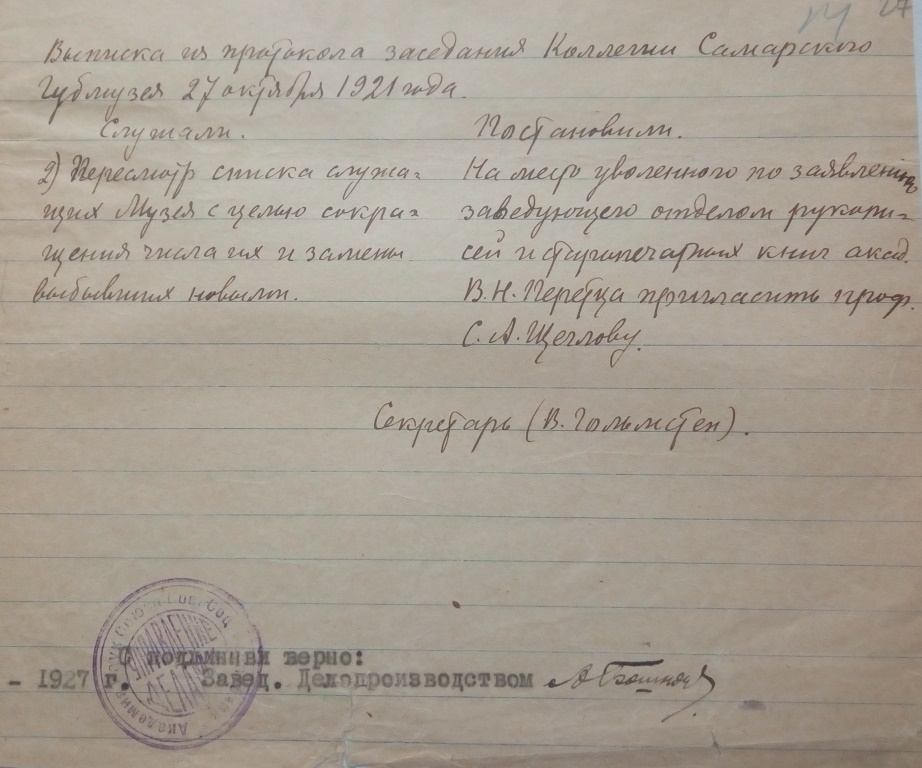 Выписка из протокола заседания Коллегии Самарского
Губмузея 27 октября 1921 года.
Слушали.
2) Пересмотр списка служа-
щих Музея с целью сокра-
щения числа их и замены
выбывших новыми.
Постановили.
На место уволенного по заявлению
заведующего отделом рукопи-
сей и старопечатных книг акад.
В.Н. Перетца пригласить проф.
С. А. Щеглову.
Секретарь (В. Гольмстен).
С подлинным верно:
- 1927 г. Завед. Делопроизводством
УПРАВЛЕНИЕ
ДЕЛАМИ
27